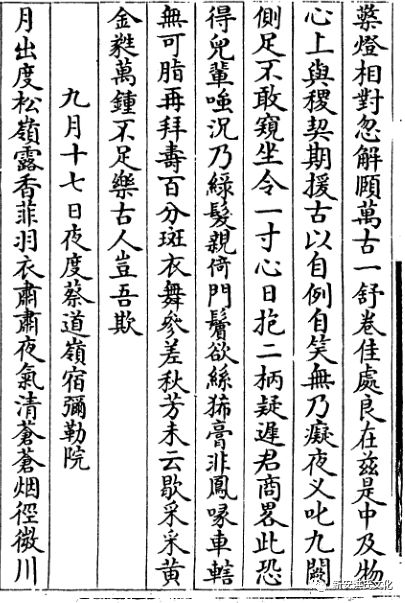 蘂燈相對忽解頤萬古一舒卷佳處良在兹是中及物
心上與稷契期援古以自例自笑無乃癡夜义叱九闗
側足不敢窺坐令一寸心日抱二柄疑遲君商畧此恐
得兒輩嗤況乃綠髮親倚門鬢欲絲狶膏非鳳喙車轄
無可脂再拜壽百分斑衣舞參差秋芳未云歇采采黄
金蕤萬鍾不足樂古人豈吾欺
九月十七日夜度蔡道嶺宿彌勒院
月出度松嶺露香菲羽衣肅肅夜氣清蒼蒼烟徑微川
新安洪氏文化